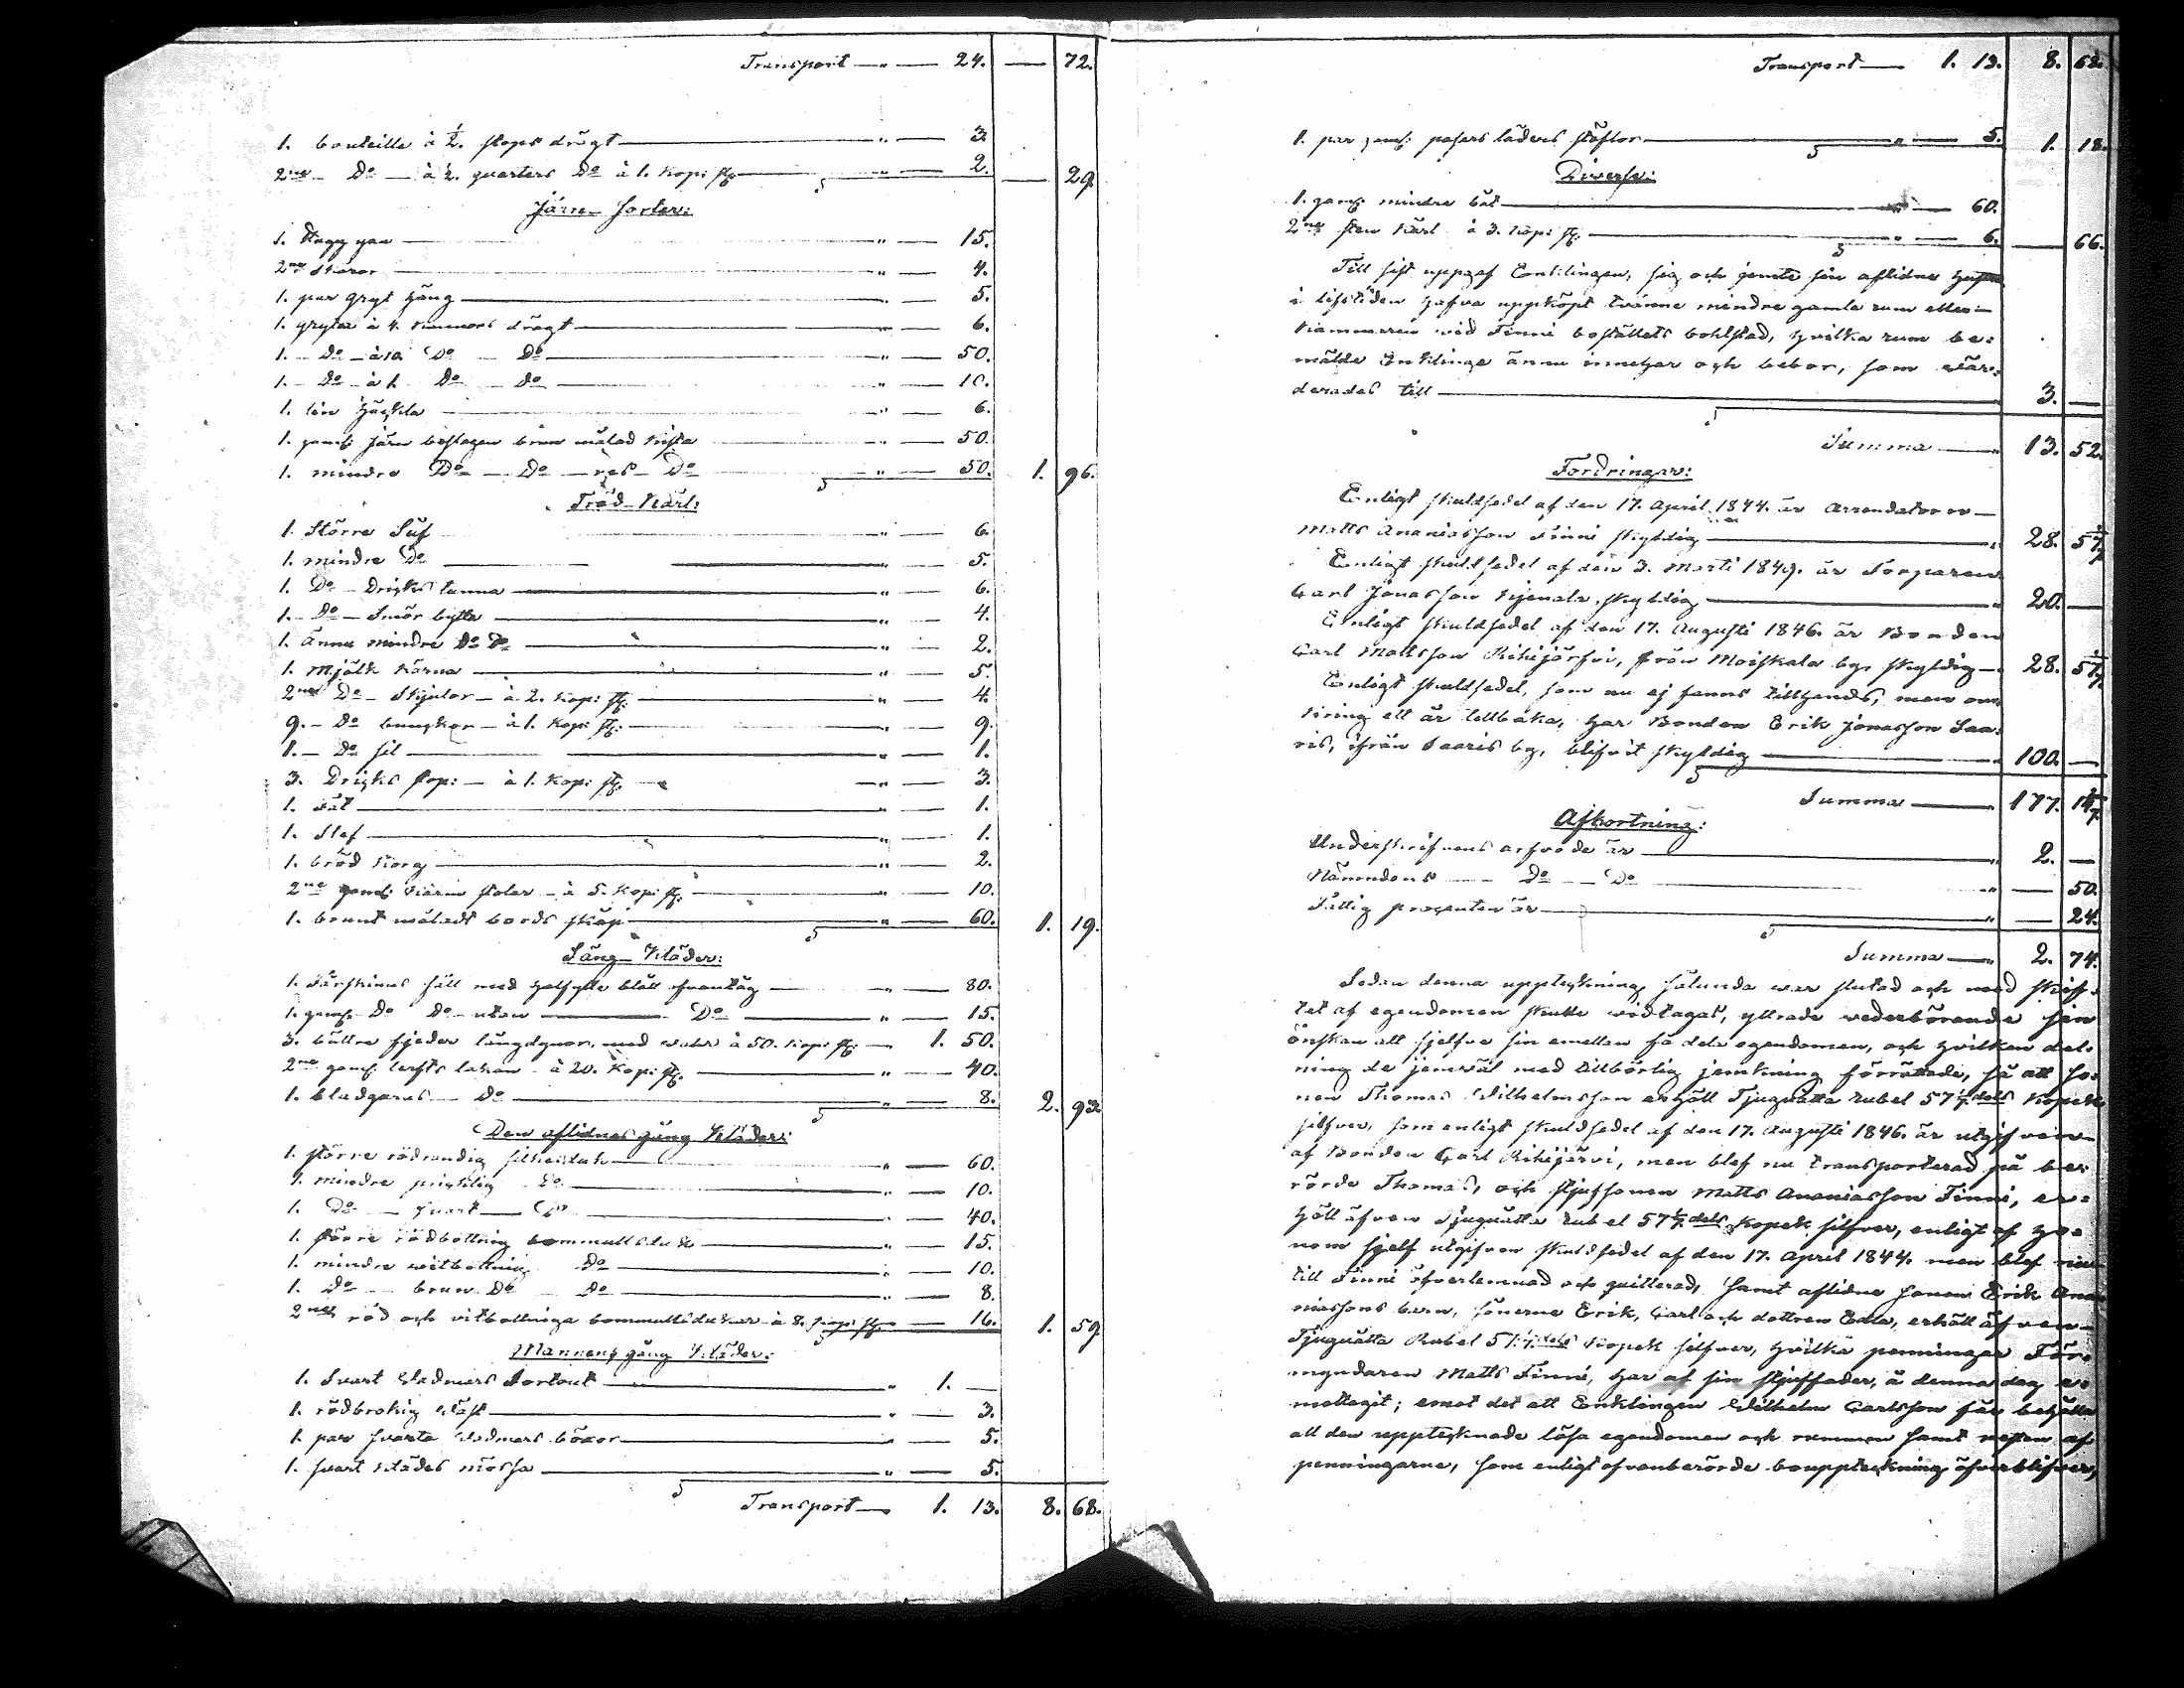 Transport — " — 24. — 72.
1. bouteille à ½. stops drägt — " — 3.
2ne D:o — à ½. quarters D:o à 1. kop: st. — " — 2. — 29.
Järn-Sorter:
1. — " — 15.
2ne skäror — " — 4.
1. par gryt häng — " — 5.
1. gryta à 4. kannors drägt — " — 6.
1. D:o à D:o D:o — " — 50.
1. D:o à 1. D:o D:o — " — 10.
1. lin häckla — " — 6.
1. gam: järn beslagen brun målad kista — " — 50.
1. mindre D:o — D:o — D:o — " — 50. 1. 96.
Träd-Kärl:
1. Större Så — " — 6.
1. mindre D:o — " — 5.
1. D:o Dricks tunna — " — 6.
1. D:o Smör bytta — " — 4.
1. ännu mindre D:o D:o — " — 2.
1. Mjölk kärna — " — 5.
2ne D:o Skjulor — à 2. kop: st. — " — 4.
9. D:o bunckar — à 1. kop: st. — " — 9.
1. D:o sil — " — 1.
3. Dricks stop: — à 1. kop: st. — " — 3.
1. Fat — " — 1.
1. Slef — " — 1.
1. bröd korg — " — 2.
2ne gaml. stolar — à 5. kop: st. — " — 10.
1. brunt måladt bords skåp — " — 60. 1. 19.
Säng-Kläder:
1. Fårskinns fäll med blått — " — 80.
1. gaml. D:o D:o utan — D:o — " — 15.
3. bättre fjeder långdynor, med à 50. kop: st. — 1. 50.
2ne gaml. lerfts lakan — à 20. kop: st. — 40.
1. blaggarns D:o — 8. 2. 93.
Den aflidnes gång Kläder:
1. större rödrandig silkesduk — " — 60.
1. mindre pricklig D:o — " — 10.
1. D:o — svart — D:o — " — 40.
1. större rödbottnig bommullsduk — " — 15.
1. mindre witbottnig D:o — " — 10.
1. D:o — brun D:o D:o — " — 8.
2ne röd och vitbottniga bommullsdukar à 8. kop: st. — 16. 1. 59.
Mannens gång Kläder:
1. Svart Wadmars Sortout — " 1. —
1. rödbrokig Wäst — " — 3.
1. par svarta Wadmars böxor — " — 5.
1. svart klädes mössa — " — 5.
Transport — 1. 13. 8. 68.
Transport — 1. 13. 8. 68.
1. par gaml: läders stöflor — " — 5. 1. 18.
Diverse:
1. gaml. mindre båt — " — 60.
2ne sten kärl à 3. kop: st. — " — 6. — 66.
Till sist uppgaf Enklingen, sig och jemte sin aflidna hustru
i lifstiden hafva uppköpt tvänne mindre gamla rum eller
kammaren wid Finni boställets bohlstad, hvilka rum be-
mälde Enklinge ännu innehar och bebor, som wär-
derades till — 3. —
Summa — 13. 52.
Fordringar:
Enligt skuldsedel af den 17. April 1844. är Arrendatoren
Matts Ananiasson Finni skyldig — " 28. 57 1/7
Enligt skuldsedel af den 3. Marti 1849. är Torparen
Carl Jonasson skyldig — " 20. —
Enligt skuldsedel af den 17. Augusti 1846. är Bonden
Carl Mattsson Rihijärfvi, från Moiskala by, skyldig — 28. 57 1/7
Enligt skuldsedel, som nu ej fanns tillhands, men om-
kring ett år tillbaka, har Bonden Erik Jonasson Saa-
ris, ifrån Saaris by, blifvit skyldig — " 100. —
Summa — 177. 14 2/7
Afkortning:
Underskrifvens arfvode är — " 2. —
Nämndens — D:o — D:o — " — 50.
Fattig procenten är — " — 24.
Summa — " 2. 74.
Sedan denna uppteckning sålunda war slutad och med skif-
tet af egendomen skulle widtagas, yttrade wederbörande sin
önskan att sjelfve sin emellan få dela egendomen, och hvilken del-
ning de jemwäl med tillbörlig jemkning förrättade, så att so-
nen Thomas Wilhelmsson erhöll Tjuguåtta rubel 57 1/7 dels Kopek
silfver, som enligt skuldsedel af den 17. Augusti 1846. är utgifven
af Bonden Carl Rihijärvi, men blef nu transporterad på be-
rörde Thomas, och stjufsonen Matts Ananiasson Finni, er-
höll äfven Tjuguåtta rubel 57 1/7 dels Kopek silfver, enligt af ho-
nom sjelf utgifven skuldsedel af den 17. April 1844. men blef nu
till Finni öfverlemnad och quitterad, samt aflidne sonen Erik Ana-
niassons barn, sönerne Erik, Carl och dottren Eda, erhöll äfven
Tjuguåtta Rubel 57 1/7 dels Kopek silfver, hvilka penningar För-
myndaren Matts Finni, har af sin stjuffader, å denna dag e-
mottagit; emot det att Enklingen Wilhelm Carlsson får behålla
all den upptecknade lösa egendomen och rummen samt resten af
penningarne, som enligt ofvanberörde bouppteckning öfverblifver,